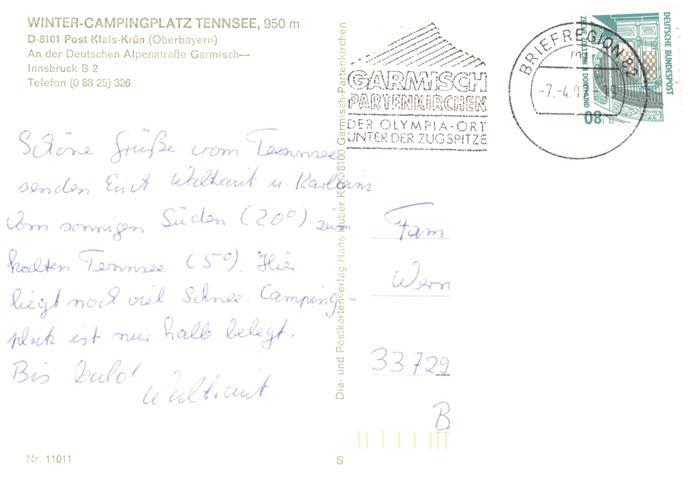 WINTER-CAMPINGPLATZ TENNSEE, 950 m
D-8101 Post Klais-Krün (Oberbayern)
An der Deutschen Alpenstraße Garmisch—
Innsbruck B 2
Telefon (0 88 25) 326
Schöne Grüße vom Tennsee
senden Euch Waltraut u. Karlheinz
Vom sonnigen Süden (20°) zum
kalten Tennsee (5°). Hier
liegt noch viel Schnee. Camping-
platz ist nur halb belegt.
Bis bald
Waltraut
Nr. 11011
Dia- und Postkartenverlag Hans Huber KG 8100 Garmisch-Partenkirchen
S
GARMISCH
PARTENKIRCHEN
DER OLYMPIA-ORT
UNTER DER ZUGSPITZE
BRIEFREGION 82
-7.-4.
DEUTSCHE BUNDESPOST
ZECHE ZOLLERN II DORTMUND
80
Fam
Wern
33729
B